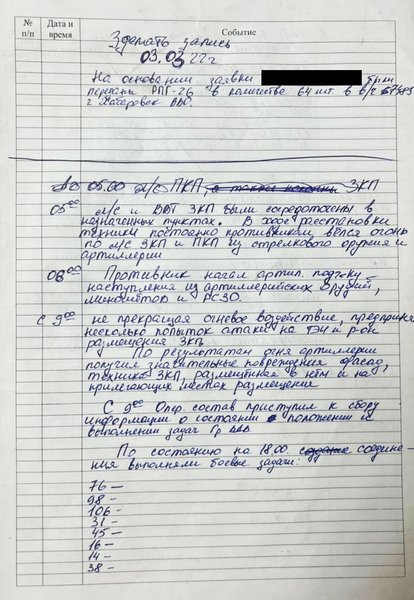 № п/п
Дата и время
Событие
Сделать запись
03.03.22г
На основании заявки
переданы РПГ-26 в количестве 64 шт. в в/ч
г. Хабаровск ВВО.
До 05.00 л/с ПКП, а также колонны ЗКП
05⁰⁰ л/с и ВВТ ЗКП были сосредоточены в
назначенных пунктах. В ходе расстановки
техники постоянно противником вёлся огонь
по л/с ЗКП и ПКП из стрелкового оружия и
артиллерии
08⁰⁰ Противник начал артил. подг-ку
наступления из артиллерийских орудий,
миномётов и РСЗО.
С 9⁰⁰ не прекращая огневое воздействие, предпринял
несколько попыток атаки на и р-он
размещения ЗКП.
По результатам дня артиллерии
получил значительные повреждения
техника ЗКП, размещённая в нём и на
прилегающих местах размещения
С 9⁰⁰ Опер. состав приступил к сбору
информации о состоянии положении и
выполнении задач Гр ВВО.
По состоянию на 18.00. соедине-
ния выполняли боевые задачи:
76 —
98 —
106 —
31 —
45 —
16 —
14 —
38 —